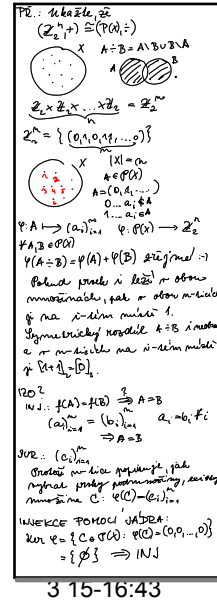 PŘ.: Ukažte, že
(ℤ₂ⁿ,+) ≅ (P(X),÷)
X A÷B = A\B ∪ B\A
A B
ℤ₂ × ℤ₂ × ... × ℤ₂ = ℤ₂ⁿ
n
ℤ₂ⁿ = {(0,1,0,1,...,0)}
n
X |X| = n
A ∈ P(X)
A = (0,1,....)
0... aᵢ ∉ A
1... aᵢ ∈ A
φ: A ↦ (aᵢ)ᵢ₌₁ⁿ φ: P(X) → ℤ₂ⁿ
∀A,B ∈ P(X)
φ(A÷B) = φ(A) + φ(B) zřejmé :-)
Pokud prvek i leží v obou
množinách, pak v obou n-ticích
je na i-tém místě 1.
Symetrický rozdíl A÷B i
a v n-ticích na i-tém místě
je [1+1]₂=[0]₂
IZO?
INJ.: f(A)=f(B) ⇒? A=B
(aᵢ)ᵢ₌₁ⁿ = (bᵢ)ᵢ₌₁ⁿ aᵢ=bᵢ ∀i
⇒ A=B
SUR.: (cᵢ)ᵢ₌₁ⁿ
Protože n-tice popisuje, jak
vybrat prvky podmnožiny,
množina C: φ(C)=(cᵢ)ᵢ₌₁ⁿ
INJEKCE POMOCÍ JÁDRA:
Ker φ = {C ∈ P(X): φ(C)=(0,0,...,0)}
= {∅} ⇒ INJ
3 15-16:43